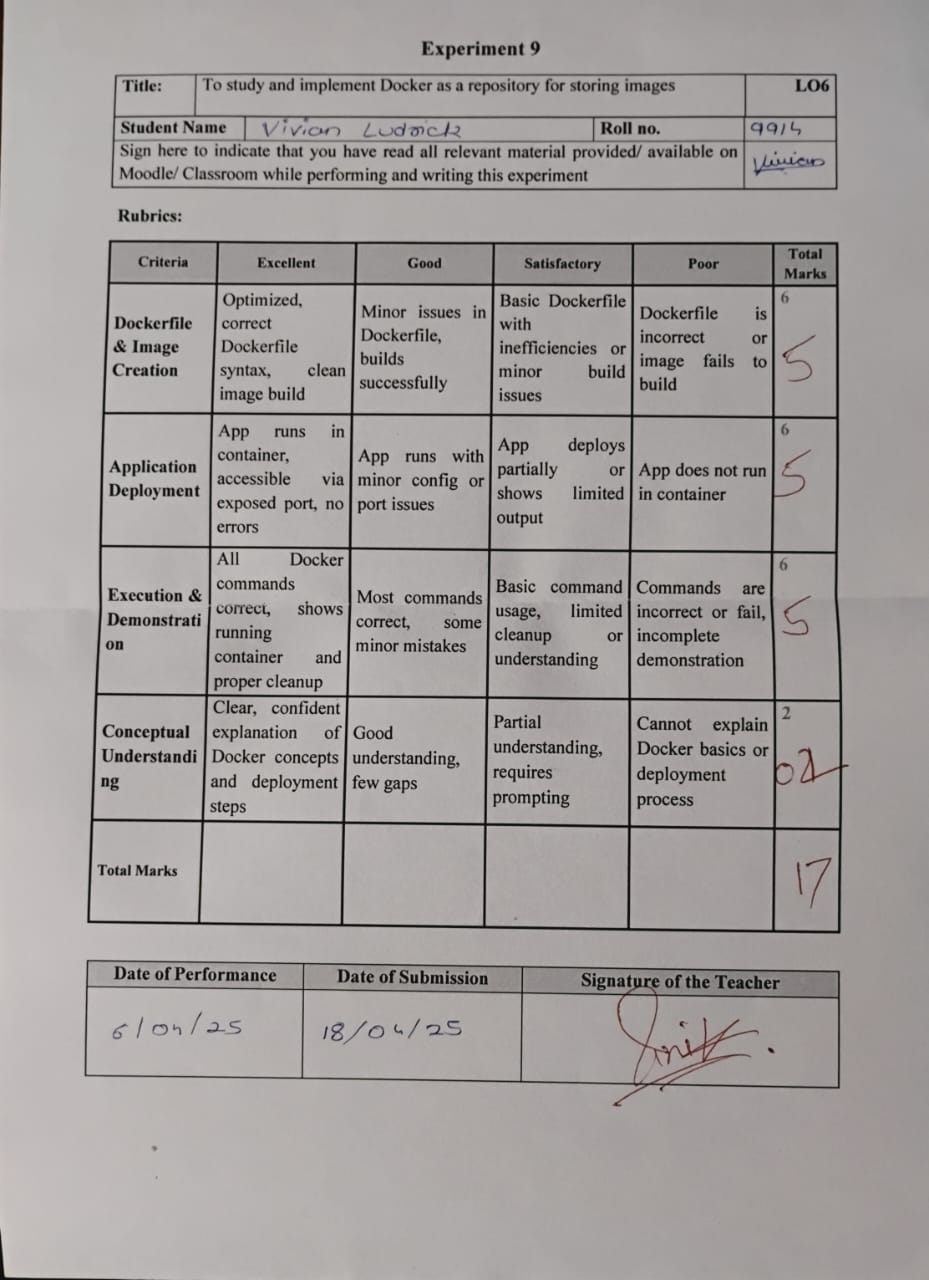 Experiment 9
Title: To study and implement Docker as a repository for storing images LO6
Student Name Vivian Ludrick Roll no. 9914
Sign here to indicate that you have read all relevant material provided/ available on
Moodle/ Classroom while performing and writing this experiment Vivian
Rubrics:
Criteria Excellent Good Satisfactory Poor Total
Marks
Dockerfile
& Image
Creation
Optimized,
correct
Dockerfile
syntax, clean
image build
Minor issues in
Dockerfile,
builds
successfully
Basic Dockerfile
with
inefficiencies or
minor build
issues
Dockerfile is
incorrect or
image fails to
build
6
5
Application
Deployment
App runs in
container,
accessible via
exposed port, no
errors
App runs with
minor config or
port issues
App deploys
partially or
shows limited
output
App does not run
in container
6
5
Execution &
Demonstrati
on
All Docker
commands
correct, shows
running
container and
proper cleanup
Most commands
correct, some
minor mistakes
Basic command
usage, limited
cleanup or
understanding
Commands are
incorrect or fail,
incomplete
demonstration
6
5
Conceptual
Understandi
ng
Clear, confident
explanation of
Docker concepts
and deployment
steps
Good
understanding,
few gaps
Partial
understanding,
requires
prompting
Cannot explain
Docker basics or
deployment
process
2
02
Total Marks
17
Date of Performance Date of Submission Signature of the Teacher
6/04/25 18/04/25